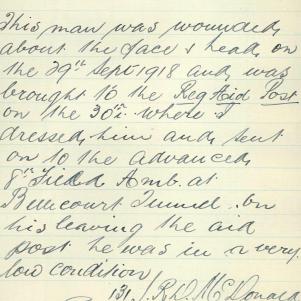 This man was wounded
about the face & head on
the 29th Sept 1918 and was
brought to the Reg Aid Post
on the 30th where I
dressed him and sent
on to the advanced
8th Field Amb. at
Bellicourt Tunnel. On
his leaving the aid
post he was in a very
low condition
McDonald